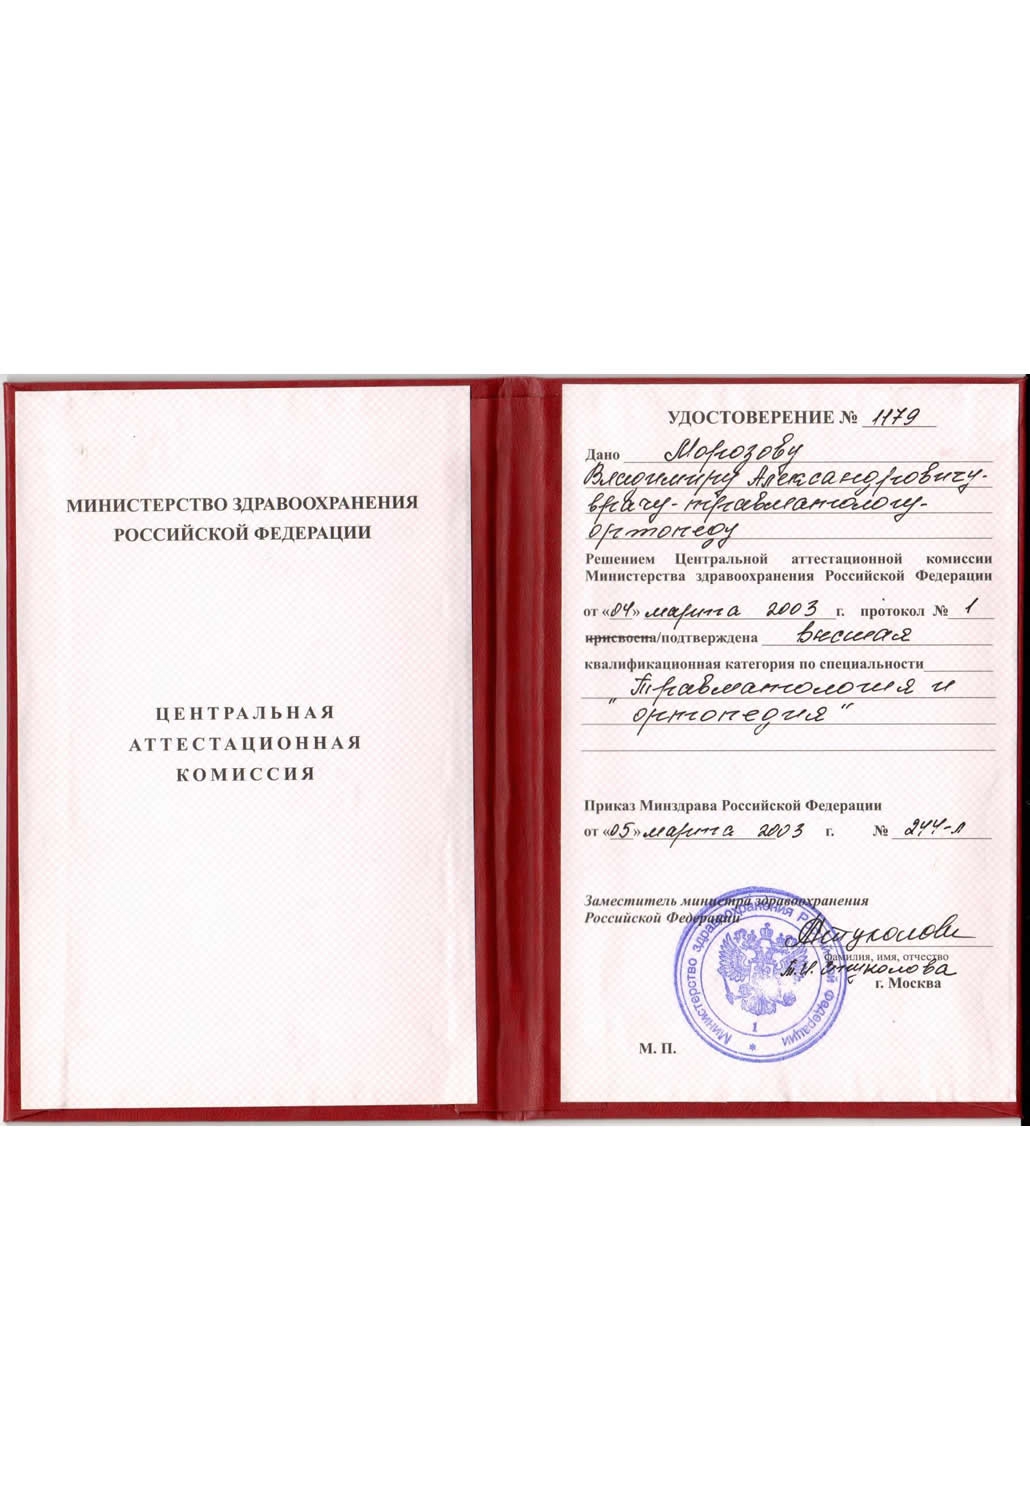 МИНИСТЕРСТВО ЗДРАВООХРАНЕНИЯ
РОССИЙСКОЙ ФЕДЕРАЦИИ
ЦЕНТРАЛЬНАЯ
АТТЕСТАЦИОННАЯ
КОМИССИЯ
УДОСТОВЕРЕНИЕ № 1179
Дано Морозову
Владимиру Александровичу-
врачу-травматологу-
ортопеду
Решением Центральной аттестационной комиссии
Министерства здравоохранения Российской Федерации
от «04» марта 2003 г. протокол № 1
присвоена/подтверждена высшая
квалификационная категория по специальности
"Травматология и
ортопедия"
Приказ Минздрава Российской Федерации
от «05» марта 2003 г. № 244-л
Заместитель министра здравоохранения
Российской Федерации
фамилия, имя, отчество
г. Москва
М. П.
Министерство здравоохранения Российской Федерации
1